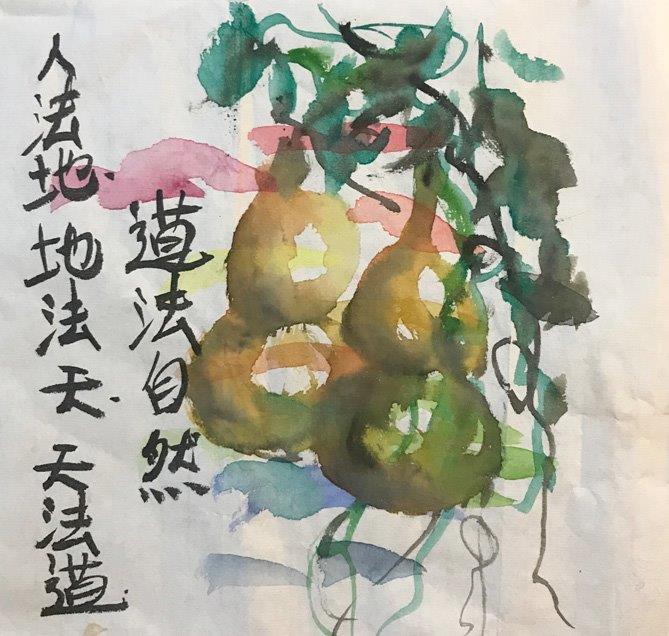 人法地、地法天、天法道
道法自然